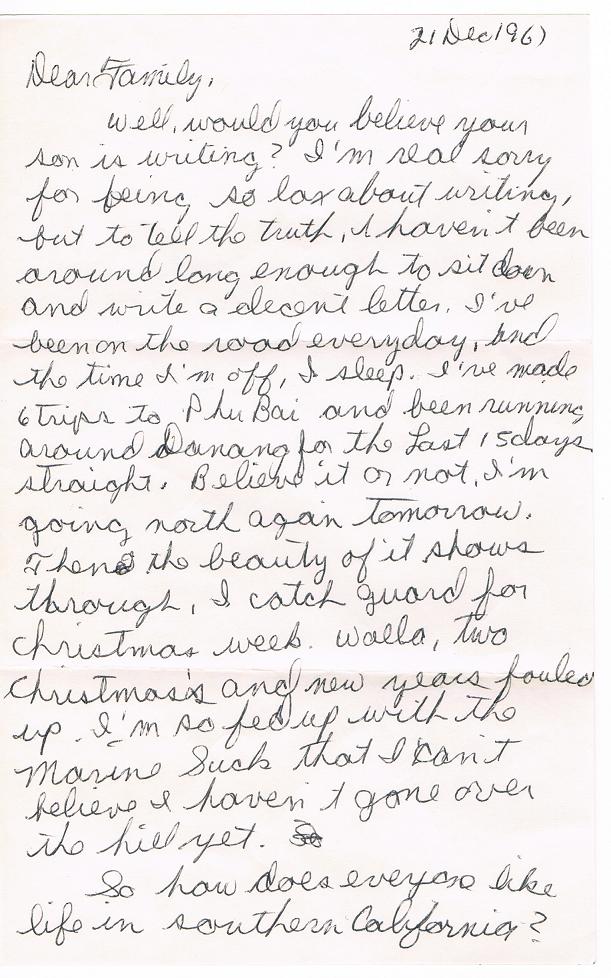 21 Dec 1967
Dear Family,
Well, would you believe your
son is writing? I'm real sorry
for being so lax about writing,
but to tell the truth, I haven't been
around long enough to sit down
and write a decent letter. I've
been on the road everyday, and
the time I'm off, I sleep. I've made
6 trips to Phu Bai and been running
around Danang for the last 15 days
straight. Believe it or not, I'm
going north again tomorrow.
Then the beauty of it shows
through, I catch guard for
Christmas week. Walla, two
Christmas's and new years fouled
up. I'm so fed up with the
Marine Suck that I can't
believe I haven't gone over
the hill yet.
So how does everyone like
life in southern California?